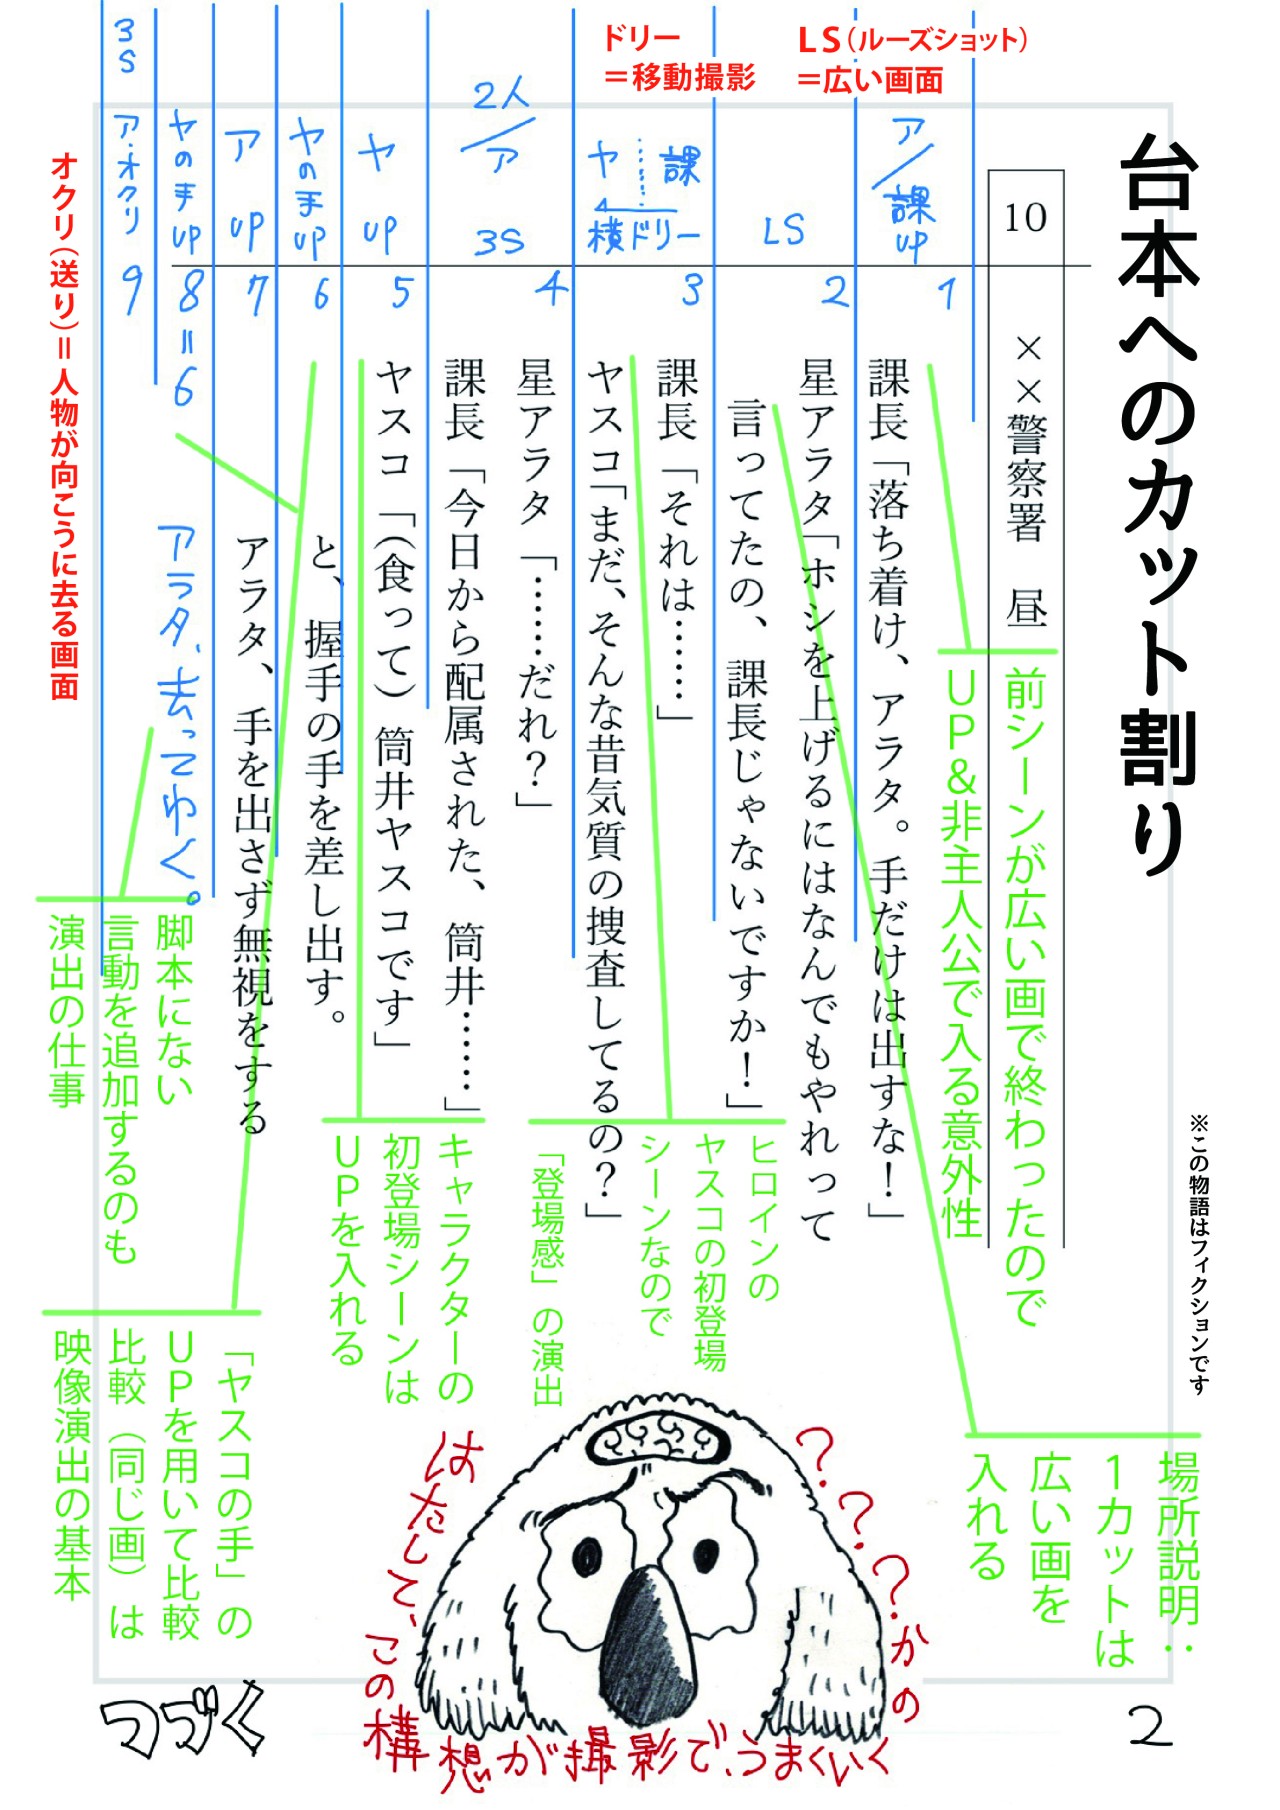 台本へのカット割り
※この物語はフィクションです
ドリー
＝移動撮影
ＬＳ（ルーズショット）
＝広い画面
オクリ（送り）＝人物が向こうに去る画面
10
××警察署　昼
ア／課UP
LS
課
ヤ
横ドリー
2人／ア
3S
ヤ UP
ヤの手UP
ア UP
ヤの手UP
3S
ア・オクリ
1
2
3
4
5
6
7
8＝6
9
課長「落ち着け、アラタ。手だけは出すな！」
星アラタ「ホシを上げるにはなんでもやれって
言ってたの、課長じゃないですか！」
課長「それは……」
ヤスコ「まだ、そんな昔気質の捜査してるの？」
星アラタ「……だれ？」
課長「今日から配属された、筒井……」
ヤスコ「（食って）筒井ヤスコです」
と、握手の手を差し出す。
アラタ、手を出さず無視をする
アラタ、去ってゆく。
前シーンが広い画で終わったので
ＵＰ＆非主人公で入る意外性
場所説明：
１カットは
広い画を
入れる
ヒロインの
ヤスコの初登場
シーンなので
「登場感」の演出
キャラクターの
初登場シーンは
ＵＰを入れる
脚本にない
言動を追加するのも
演出の仕事
「ヤスコの手」の
ＵＰを用いて比較
比較（同じ画）は
映像演出の基本
はたして、この構想が撮影で、うまくいくのか？？？
つづく
2